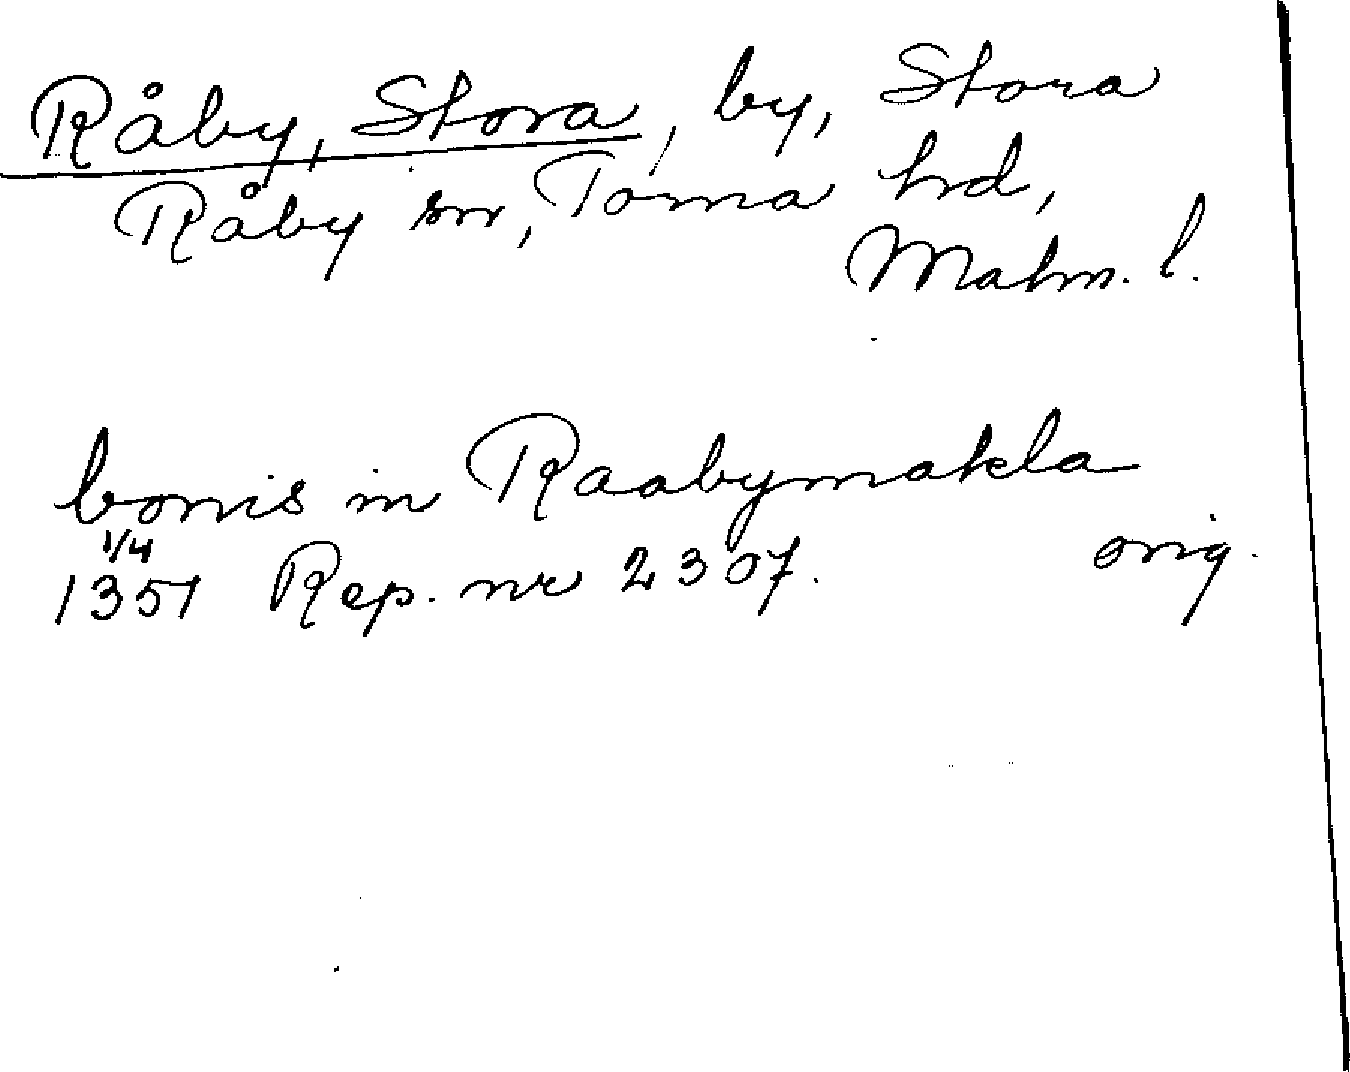 Råby, Stora, by, Stora
Råby sn, Torna hd,
Malm. l.
bonis in Raabymakla
1/4
1351 Rep. nr 2307. orig.